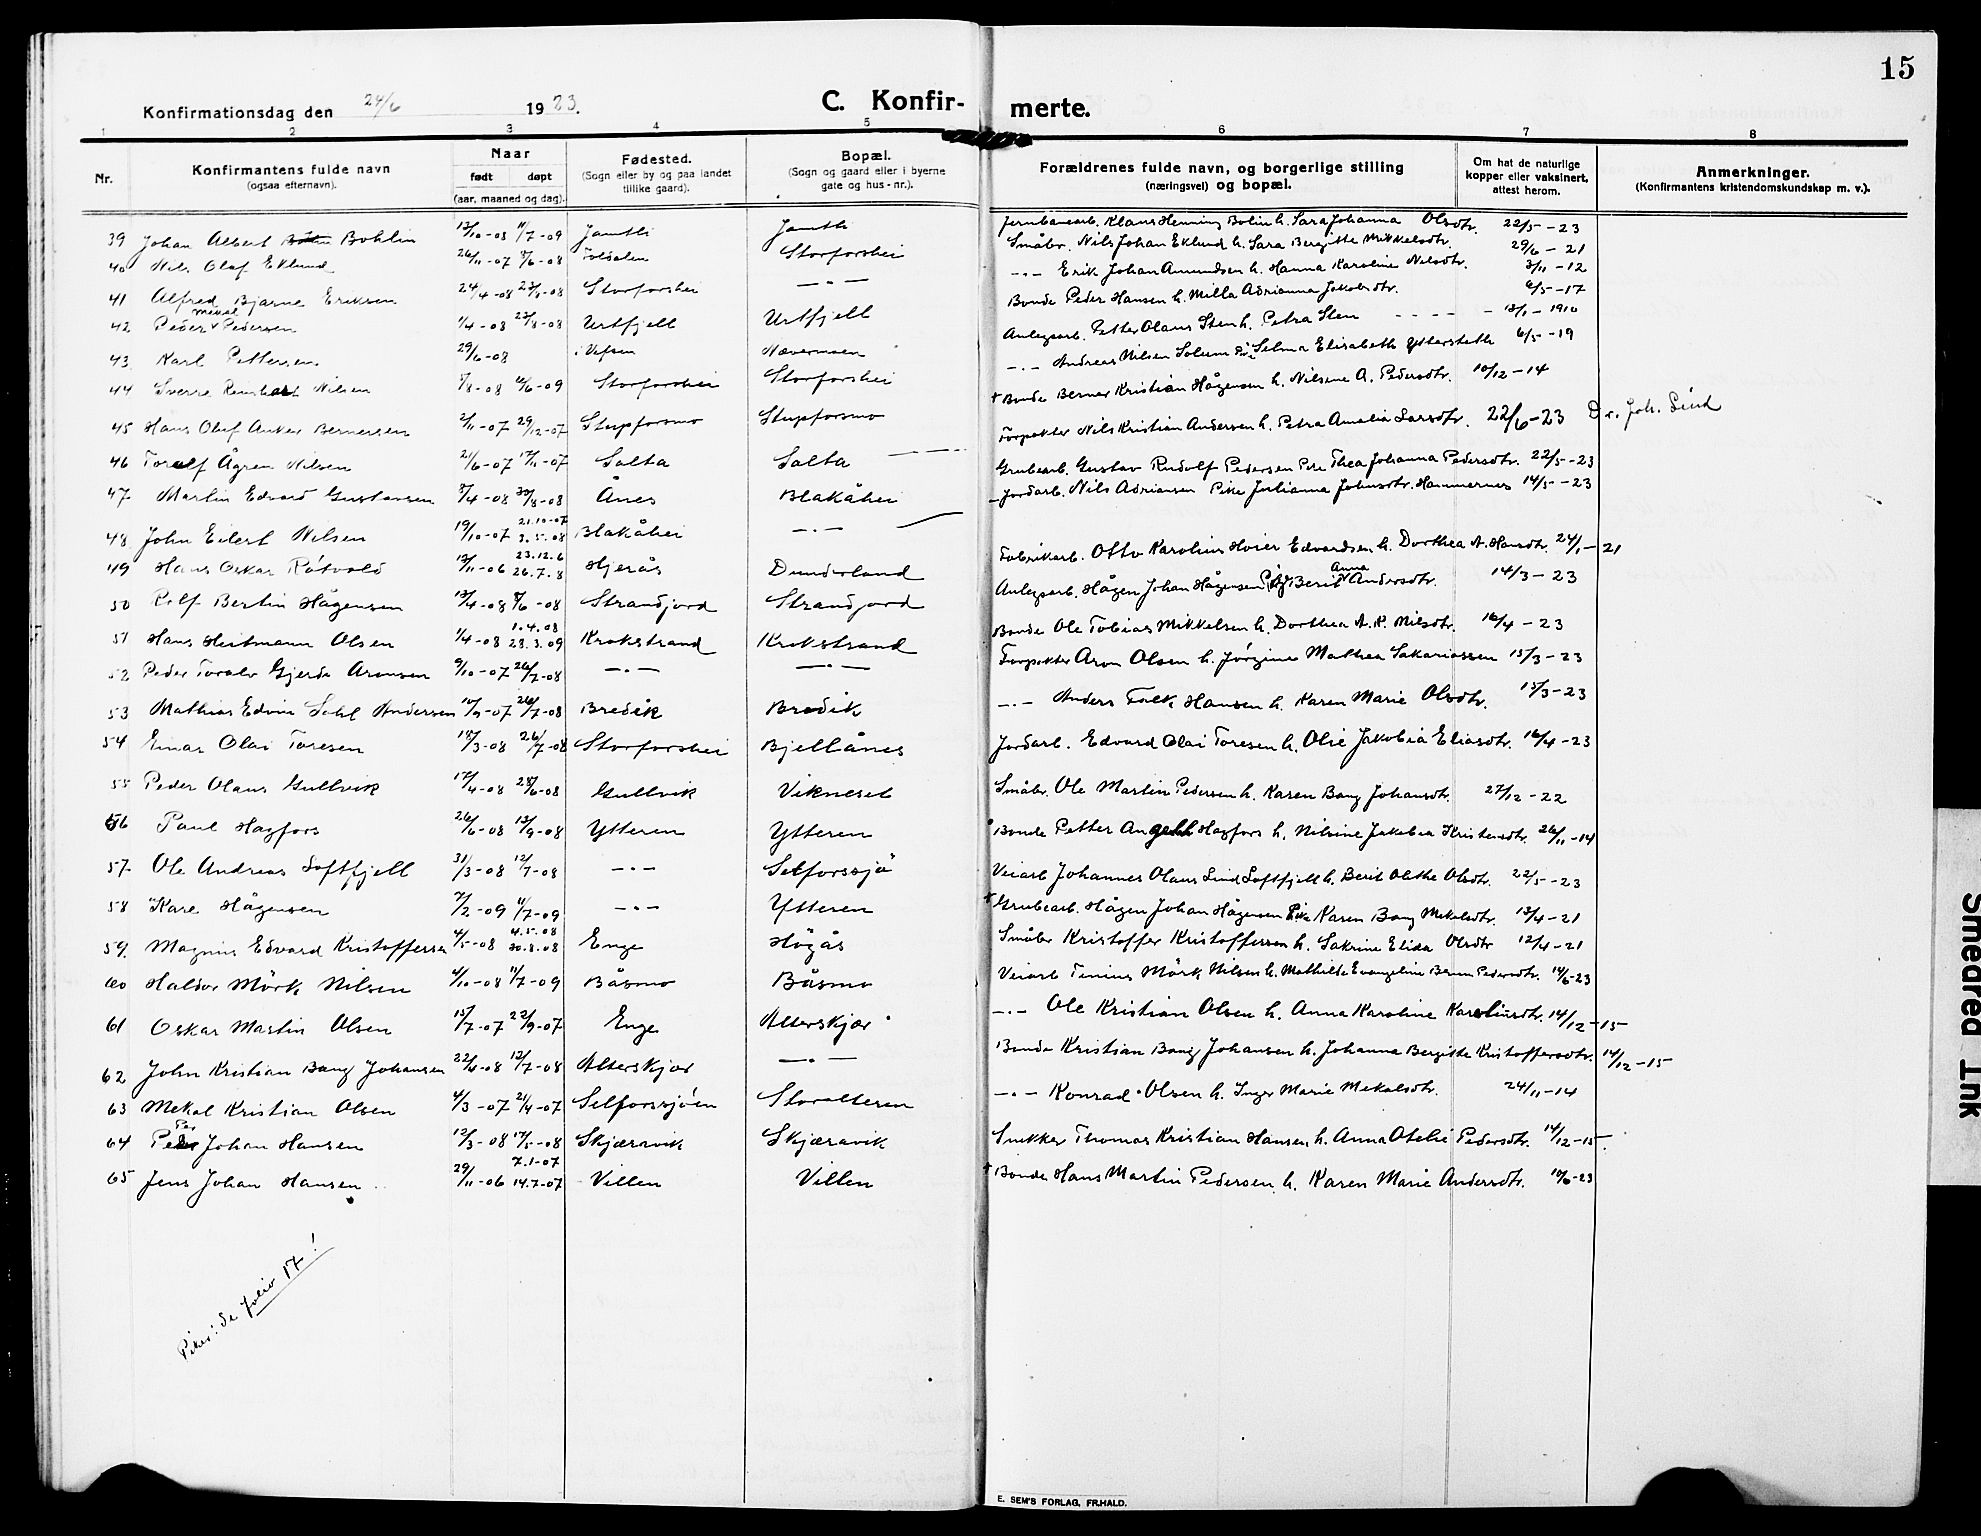 15
Konfirmationsdag den 24/6 1923.
C. Konfir- merte.
1 2 3 4 5 6 7 8
Nr.
Konfirmantens fulde navn
(ogsaa efternavn).
Naar
født døpt
(aar, maaned og dag).
Fødested.
(Sogn eller by og paa landet
tillike gaard).
Bopæl.
(Sogn og gaard eller i byerne
gate og hus-nr.).
Forældrenes fulde navn, og borgerlige stilling
(næringsvei) og bopæl.
Om hat de naturlige
kopper eller vaksinert,
attest herom.
Anmerkninger.
(Konfirmantens kristendomskundskap m. v.).
39 Johan Albert Bohlin 13/10-08 11/7-09 Jamtli Jamtli Jernbanearb. Klaus Henning Bolin h. Sara Johanna Olsdtr. 22/5-23
40 Nils Olaf Eklund 26/11-07 8/6-08 Storforshei Småbr. Nils Johan Eklund h. Sara Bergitte Mikkelsdtr. 29/6-21
41 Alfred Bjarne Eriksen 24/4-08 Storforshei -"- -"- Erik Johan Amundsen h. Hanna Karoline Nilsdtr. 3/11-12
42 Peder Mekal Pedersen 1/4-08 23/8-08 Urtfjell Urtfjell Bonde Peder Hansen h. Milla Adrianna Jakobsdtr. 6/5-17
43 Karl Pettersen 29/6-08 i Vefsen Nævermoen Anlegsarb. Petter Olaus Sten h. Petra Sten - - - - 13/1-1910
44 Sverre Reinhart Nilsen 8/8-08 10/6-09 Storforshei Storforshei -"- Andreas Nilsen Solum Pi. Selma Elisabeth Yttersteth 6/5-19
45 Hans Olaf Anker Bernersen 2/11-07 29/12-07 Stupforsmo Stupforsmo + Bonde Berner Kristian Hågensen h. Nilsine A. Pedersdtr. 10/12-14
46 Toralf Ågren Nilsen 21/6-07 17/11-07 Salta Salta Forpakter Nils Kristian Andersen h. Petra Amalia Larsdtr. 22/6-23 Dr. Joh. Lind
47 Martin Edvard Gustavsen 8/4-08 30/8-08 Ånes Blakåhei Grubearb. Gustav Rudolf Pedersen Pike Thea Johanna Pedersdtr. 22/5-23
48 John Eilert Nilsen 19/10-07 21.10-07 3.5.08 Blakåhei -"- Jordarb. Nils Adriansen Pike Julianna Johnsdtr. Hammernes 14/5-23
49 Hans Oskar Råtvold 13/11-06 23.12.6 26.7.8 Hjerås Dunderland Fabrikarb. Otto Karolius Hoier Edvardsen h. Dorthea A. Hansdtr. 24/1-21
50 Rolf Bertin Hågensen 13/4-08 8/6-08 Strandjord Strandjord Anlegsarb. Hågen Johan Hågensen Pike Berit Anna Andersdtr. 14/3-23
51 Hans Heitmann Olsen 1/4-08 1.4.08 28.3.09 Krokstrand Krokstrand Bonde Ole Tobias Mikkelsen h. Dorthea A. K. Nilsdtr. 16/4-23
52 Peder Toralv Gjerde Aronsen 9/10-07 26/7-08 -"- -"- Forpakter Aron Olsen h. Jörgine Mathea Sakariassen 15/3-23
53 Mathias Edvin Andersen 10/9-07 26/7-08 Bredik Bredik -"- Anders Falk Hansen h. Karen Marie Olsdtr. 15/3-23
54 Einar Olai Toresen 18/3-08 26/7-08 Storforshei Bjellånes Jordarb. Edvard Olai Toresen h. Olie Jakobia Eliasdtr. 16/4-23
55 Peder Olaus Gullvik 17/4-08 28/6-08 Gullvik Vikneset Småbr. Ole Martin Pedersen h. Karen Bang Johansdtr. 27/12-22
56 Paul Hagfors 26/6-08 13/9-08 Ytteren Ytteren Bonde Petter Angell Hagfors h. Nilsine Jakobia Kristensdtr. 26/11-14
57. Ole Andreas Loftfjell 31/3-08 12/7-08 -"- Selforssjö Veiarb Johannes Olaus Lind Loftfjell h. Berit Olethe Olsdtr. 22/5-23
58 Kåre Hågensen 7/2-09 11/7-09 -"- Ytteren + Grubearb. Hågen Johan Hågensen Pike Karen Bang Mekalsdtr. 13/4-21
59. Magnus Edvard Kristoffersen 4/5-08 4.5.08 30.8.08 Enge Högås Småbr Kristoffer Kristoffersen h. Sakrine Elida Olsdtr 12/4-21
60 Haldor Mörk Nilsen 4/10-08 11/7-09 Båsmo Båsmo Veiarb Tinius Mörk Nilsen h. Mathilde Evangeline Pedersdtr. 14/6-23
61 Oskar Martin Olsen 15/7-07 22/9-07 Enge Alterskjær -"- Ole Kristian Olsen h. Anna Karoline Karoliusdtr. 14/12-15
62 John Kristian Bang Johansen 22/6-08 12/7-08 Alterskjær -"- Bonde Kristian Bang Johansen h. Johanna Bergitte Kristoffersdtr. 14/12-15
63 Mekal Kristian Olsen 4/3-07 21/4-07 Selforssjöen Storalteren -"- Konrad Olsen h. Inger Marie Mekalsdtr. 24/11-14
64 Peder Per Johan Hansen 12/3-08 17/5-08 Skjæravik Skjæravik Snekker Thomas Kristian Hansen h. Anna Otelie Pedersdtr. 14/12-15
65 Jens Johan Hansen 29/11-06 7.1-07 14.7-07 Villen Villen + Bonde Hans Martin Pedersen h. Karen Marie Andersdtr. 14/6-23
Piker: Se folio 17!
E. SEM'S FORLAG, FR.HALD.
Smeared Ink